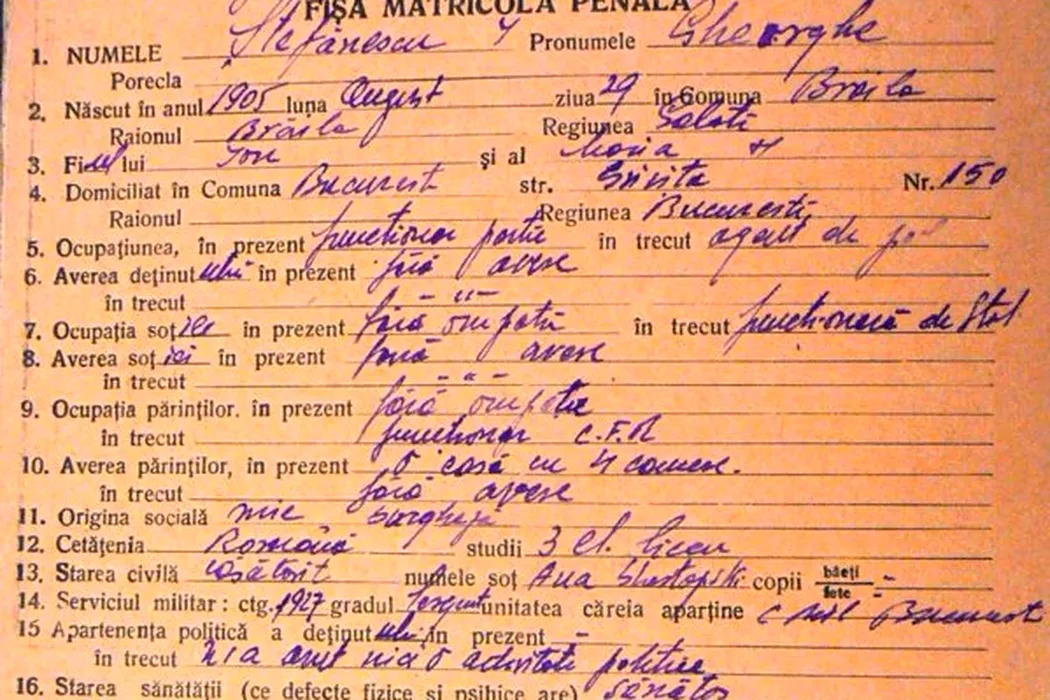 FIȘA MATRICOLĂ PENALĂ
1. NUMELE Ștefănescu I Pronumele Gheorghe
Porecla
2. Născut în anul 1905 luna August ziua 29 în Comuna Brăila
Raionul Brăila Regiunea Galati
3. Fiul lui Ion și al Maria
4. Domiciliat în Comuna Bucuresti str. Grivita Nr. 150
Raionul Regiunea Bucuresti
5. Ocupațiunea, în prezent functionar în trecut agent de
6. Averea deținutului în prezent fără avere
în trecut – " –
7. Ocupația soției în prezent fără ocupatie în trecut functionară de Stat
8. Averea soției în prezent fără avere
în trecut – " –
9. Ocupația părinților. în prezent fără ocupatie
în trecut functionar C.F.R
10. Averea părinților, în prezent o casă cu 4 camere.
în trecut fără avere
11. Origina socială mic burgheză
12. Cetățenia Română studii 3 cl. liceu
13. Starea civilă căsătorit numele soț Ana copii băeți – fete –
14. Serviciul militar: ctg. 1927 gradul Sergent unitatea căreia aparține C mil Bucuresti
15 Apartenența politică a deținutului în prezent –
în trecut N/a avut nici o activitate politica
16. Starea sănătății (ce defecte fizice și psihice are) sănătos